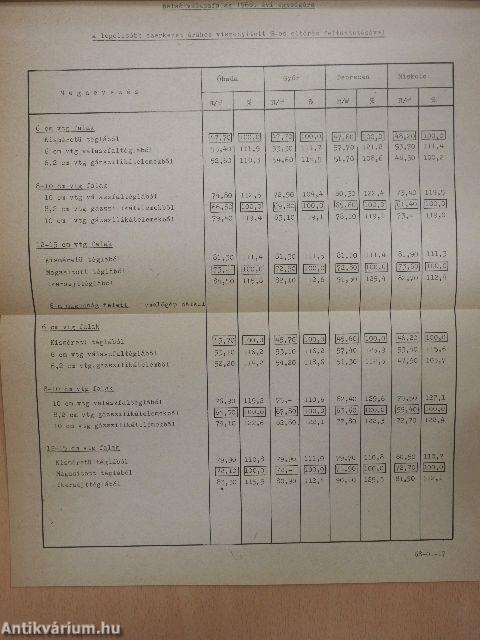 Belső válaszfalak 1968. évi egységára
a legolcsóbb szerkezet árához viszonyított %-os eltérés feltüntetésével
Megnevezés Óbuda Győr Debrecen Miskolc
Ft/m² % Ft/m² % Ft/m² % Ft/m² %
6 cm vtg falak
Kisméretű téglából 47,70 100,0 47,70 100,0 47,60 100,0 48,20 100,0
6 cm vtg válaszfaltéglából 53,40 111,9 53,30 111,7 57,70 121,2 53,70 111,4
6,2 cm vtg gázszilikátelemekből 52,60 110,3 54,60 114,5 51,70 108,6 48,30 100,2
8-10 cm vtg falak
10 cm vtg válaszfaltéglából 74,80 112,5 72,90 104,4 80,30 122,4 73,40 119,5
8,2 cm vtg gázszilikátelemekből 66,50 100,0 69,80 100,0 65,60 100,0 61,40 100,0
10 cm vtg gázszilikátelemekből 79,40 119,4 83,10 119,1 78,10 119,1 73,- 119,0
12-15 cm vtg falak
Kisméretű téglából 81,30 111,4 81,30 111,5 81,10 111,4 81,90 111,3
Magasított téglából 73,- 100,0 72,90 100,0 72,80 100,0 73,60 100,0
Ikersejttéglából 84,50 115,8 82,10 112,6 91,30 125,4 82,70 112,4
6 m magasság felett
6 cm vtg falak
Kisméretű téglából 45,70 100,0 45,70 100,0 45,60 100,0 46,20 100,0
6 cm vtg válaszfaltéglából 53,10 116,2 53,10 116,2 57,40 125,9 53,40 115,6
6,2 cm vtg gázszilikátelemekből 52,20 114,2 54,20 118,6 51,30 112,5 47,90 103,7
8-10 cm vtg falak
10 cm vtg válaszfaltéglából 76,90 119,2 75,- 110,6 82,40 129,6 75,50 127,1
8,2 cm vtg gázszilikátelemekből 64,50 100,0 67,80 100,0 63,60 100,0 59,40 100,0
10 cm vtg gázszilikátelemekből 79,10 122,6 82,80 122,1 77,80 122,3 72,70 122,4
12-15 cm vtg falak
Kisméretű téglából 79,90 110,8 79,90 111,0 79,70 110,8 80,50 110,7
Magasított téglából 72,10 100,0 72,- 100,0 71,90 100,0 72,70 100,0
Ikersejttéglából 83,30 115,5 80,90 112,4 90,10 125,3 81,50 112,1
Antikvárium.hu